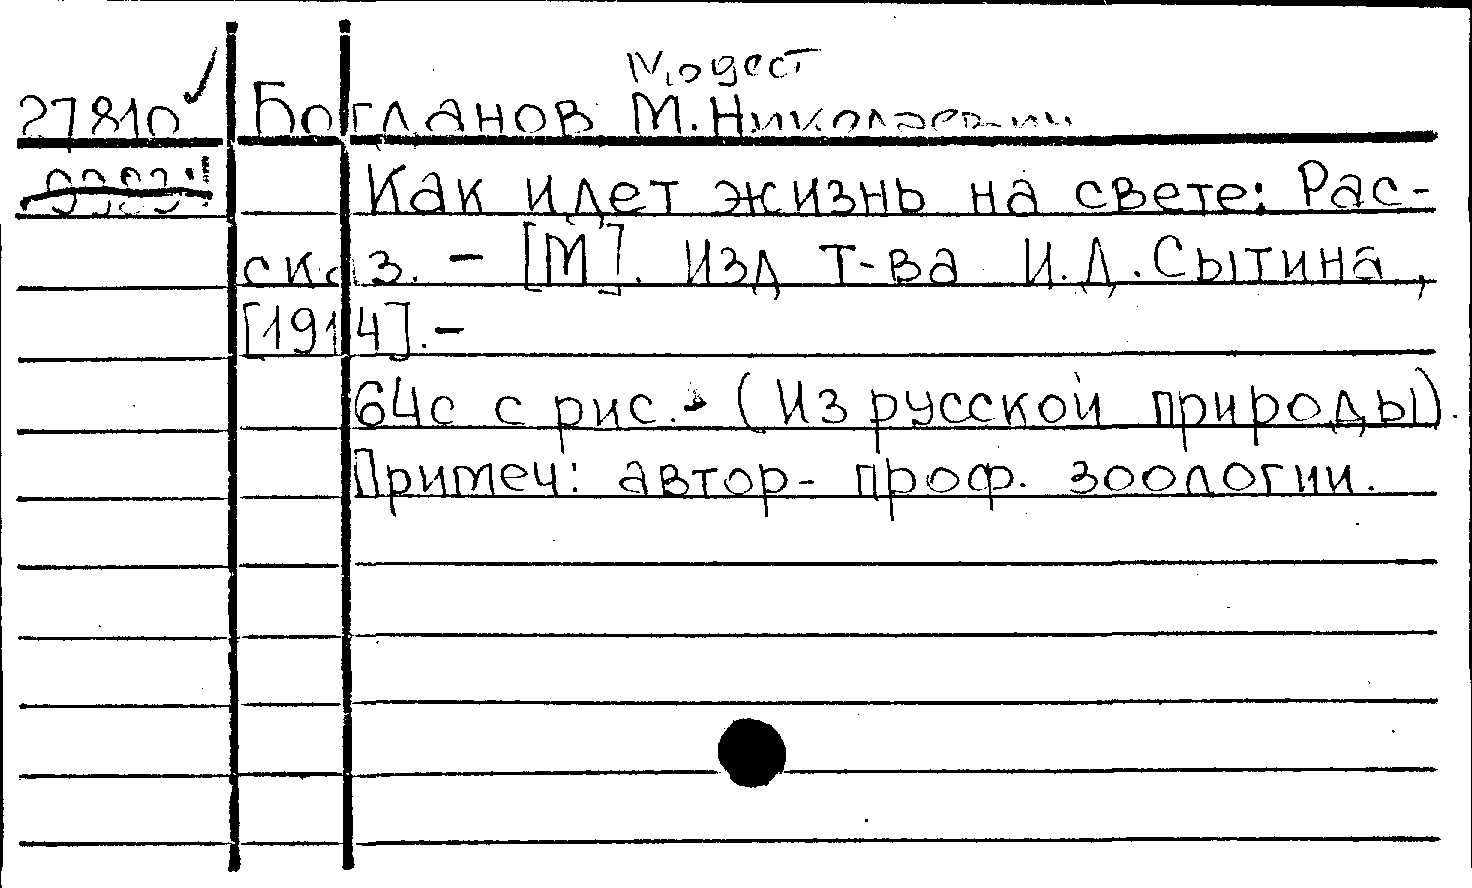 Модест
27810 Богданов М. Николаевич
Как идет жизнь на свете: Рас-
сказ. - [М]. Изд Т-ва И.Д. Сытина,
[1914]. -
64с с рис. - (Из русской природы).
Примеч: автор - проф. зоологии.